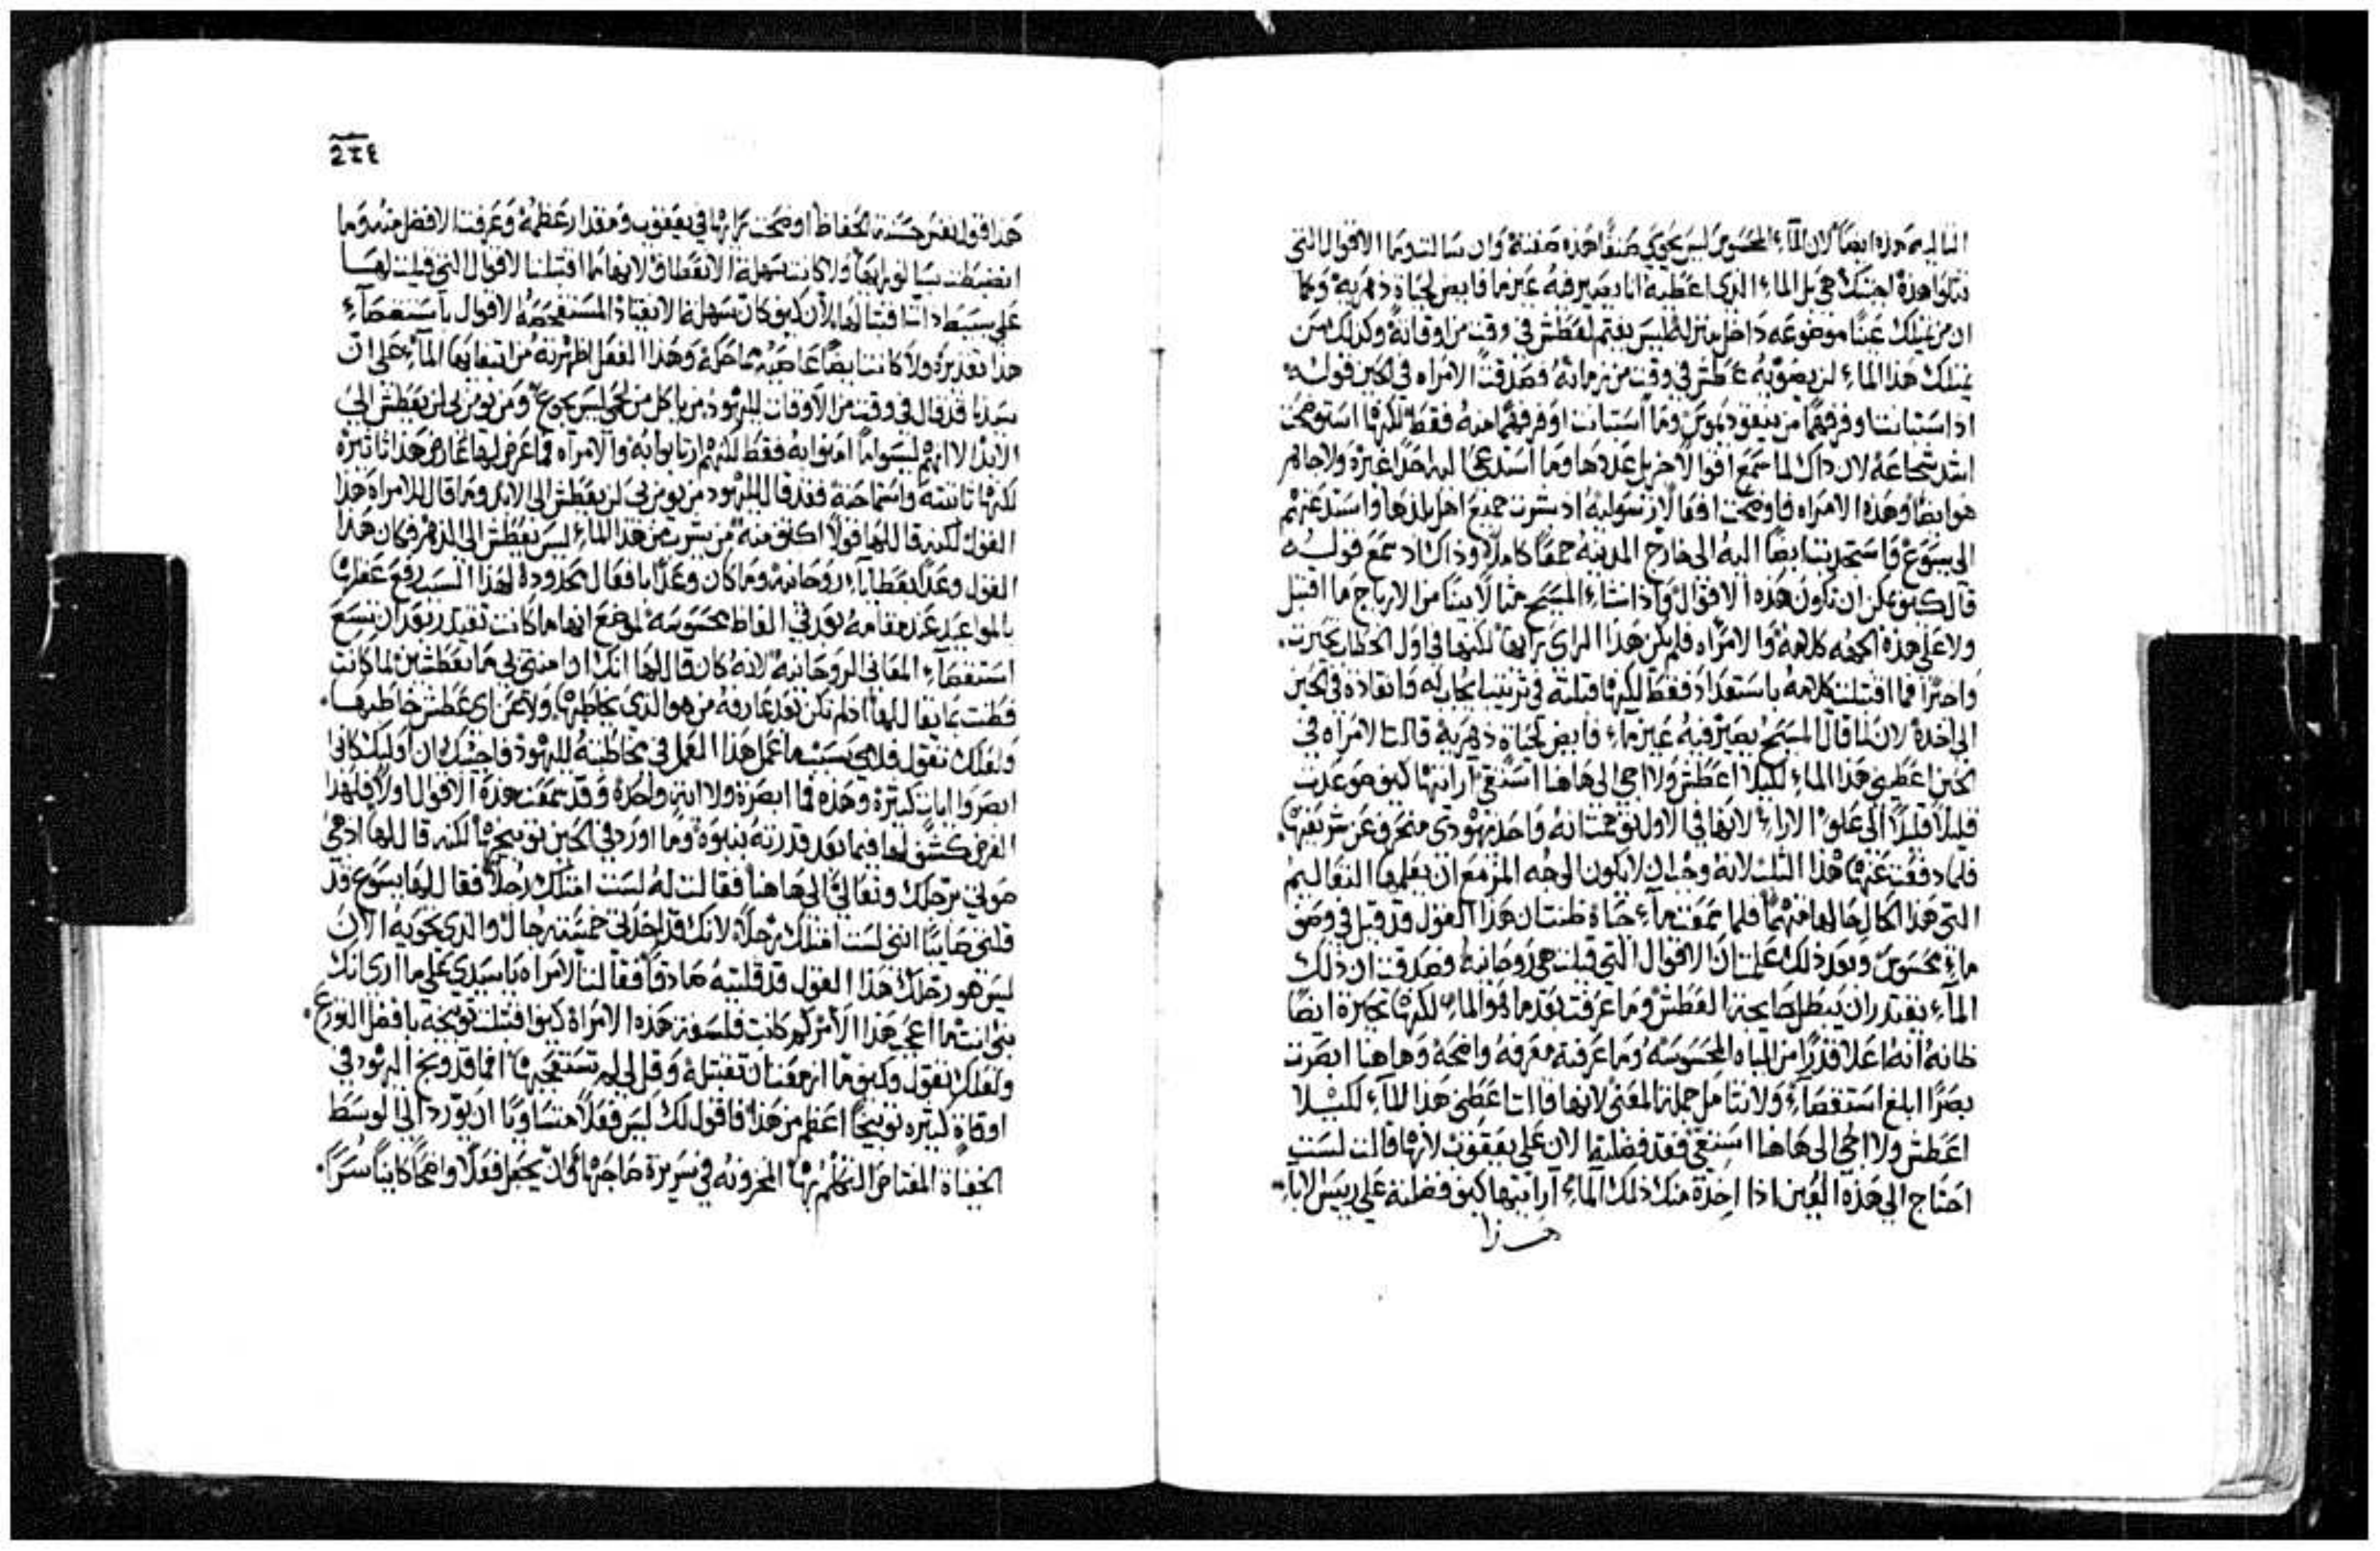 التاليه هذه ايضًا لان المآء المحسوس ليس يحوي صنفًا هذه صفته وان سالت وما الاقوال التي
تتلوا هذه اجبتك هي بل الماء الذي اعطيه انا يصير فيه عين ما فايض لحياة دهريه وكما
ان من يمتلك عينًا موضوعه داخل منزله ليس يغتم لعطش في وقت من اوقاته وكذلك من
يمتلك هذا الماء لن يصوبه عطش في وقت من زمانه فصدقت الامراه في الحين قوله
اذ استبانت اوفر فهمًا من نيقوديموس وما استبانت اوفر فهمًا منه فقط لكنها استوضحت
اشد شجاعة لان ذاك لما سمع اقوالًا جزيل عددها وما استدعى اليه احدًا غيره ولا جاهر
هو ايضًا وهذه الامراه فاوضحت افعالًا رسوليه اذ بشرت جميع اهل بلدها واستدعتهم
الى يسوع فاستجذبت ايضًا اليه الى خارج المدينه جمعًا كاملًا وذاك اذ سمع قوله
قال كيف يمكن ان تكون هذه الاقوال واذ اشاء المسيح مثالًا بينًا من الارياح ما اقتبل
ولا على هذه الجهه كلامه والامراه فلم يكن هذا الراي رايها لكنها في اول الخطاب تحيرت.
واخيرًا فما اقتبلت كلامه باستعداد فقط لكنها قبلته في ترتيب ايجابه وانقاده في الحين
الى اخذه لان لما قال المسيح يصير فيه عين مآء فايض لحياة دهريه قالت الامراه في
الحين اعطيني هذا الماء لكيلا اعطش ولا اجي الى هاهنا استقي ارايتها كيف صوعدت
قليلًا قليلًا الى علو الاراء لانها في الاول توهمت انه واحد يهودي منحرف عن شريعتها.
فلما دفعت عنها هذا الثلب لانه وجب ان لا يكون الوجه المزمع ان يعلمها التعاليم
التي هذا الحال حالها متهمًا فلما سمعت مآء حياة ظنت ان هذا القول قد قيل في وصف
مآء محسوس وبعد ذلك علمت ان الاقوال التي قيلت هي روحانيه وصدقت ان ذلك
المآء يقتدر ان يبطل ضايحة العطش وما عرفت بعد ما هو الماء لكنها تحيرة ايضًا
ظانه انه اعلا قدرًا من المياه المحسوسه وما عرفته معرفه واضحه وهاهنا ابصرت
بصرًا ابلغ استقصاء ولا تتامل جملة المعنى لانها قالت اعطني هذا المآء لكيلا
اعطش ولا اجي الى هاهنا استقي فقد فضلته الان على يعقوب لانها قالت لست
احتاج الى هذه العين اذا اخذة منك ذلك المآء ارايتها كيف فضلته على رييس الابآء
هذا
هذا قول نفس حسنة الحفاظ اوضحت رايها في يعقوب ومقدار عظمه وعرفت الافضل منه وما
انضبطت بسالف رايها ولا كانت سهلة الانعطاف لانها ما اقتبلت الاقوال التي قيلت لها
هذا تقديره ولا كانت ايضًا عاصيه ماحكه وهذا الفعل اظهرته من ابتغايها المآء على ان
سيدنا قد قال في وقت من الاوقات لليهود من ياكل من لحمي ليس يجوع ومن يومن بي لن يعطش الى
الابد الا انهم ليسوا ما امنوا به فقط لكنهم ارتابوا به والامراه فما عرض لها عارض هذا تاثيره
لكنها تانته واستماحته فقد قال لليهود من يومن بي لن يعطش الى الابد وما قال للامراه هذا
القول لكنه قال لها قولًا اكثف منه من يشرب من هذا الماء ليس يعطش الى الدهر فكان هذا
القول وعدًا بعطايا روحانيه وما كان وعدًا بافعال محدوده لهذا السبب رفع عقلها
بالمواعيد عند مقامه بعد في الفاظ محسوسه لموضع انها ما كانت تقتدر بعد ان تسمع
استقصآء المعاني الروحانيه لانه كان قال لها انك اذا امنتي بي ما تعطشين لما كانت
فطنت بما يقال لها اذ لم تكن بعد عارفه من هو الذي يخاطبها ولا عن اي عطش خاطبها.
ولعلك تقول فلاي سبب ما عمل هذا العمل في مخاطبته لليهود فاجيبك ان اوليك كانوا
ابصروا ايات كثيرة وهذه فما ابصرة ولا ايه واحده وقد سمعت هذه الاقوال اولًا فلهذا
الغرض كشف لها فيما بعد قدرته بنبوة وما اورد في الحين توبيخها لكنه قال لها اذهبي
صوتي برجلك وتعالي الى هاهنا فقالت له لست امتلك رجلًا فقال لها يسوع قد
قلتي صايبًا انني لست امتلك رجلًا لانك قد اخذتي خمسة رجال والذي تحويه الان
ليس هو رجلك هذا القول قد قلتيه صادقًا فقالت الامراه يا سيدي على ما ارى انك
نبي انت ما اعجب هذا الامر كم كانت فلسفة هذه الامراة كيف اقتبلت توبيخه بافضل الورع.
ولعلك تقول وكيف ما ازمعت ان تقتبله وقل لي لم تستعجبها افما قد وبخ اليهود في
اوقاة كثيره توبيخًا اعظم من هذا فاقول لك ليس فعلًا متساويًا ان يورد الى الوسط
الخفاة المعتاص النكلم بها المخزونه في سريرة صاحبها وان يجعل فعلًا واضحًا كاينًا سرًا.